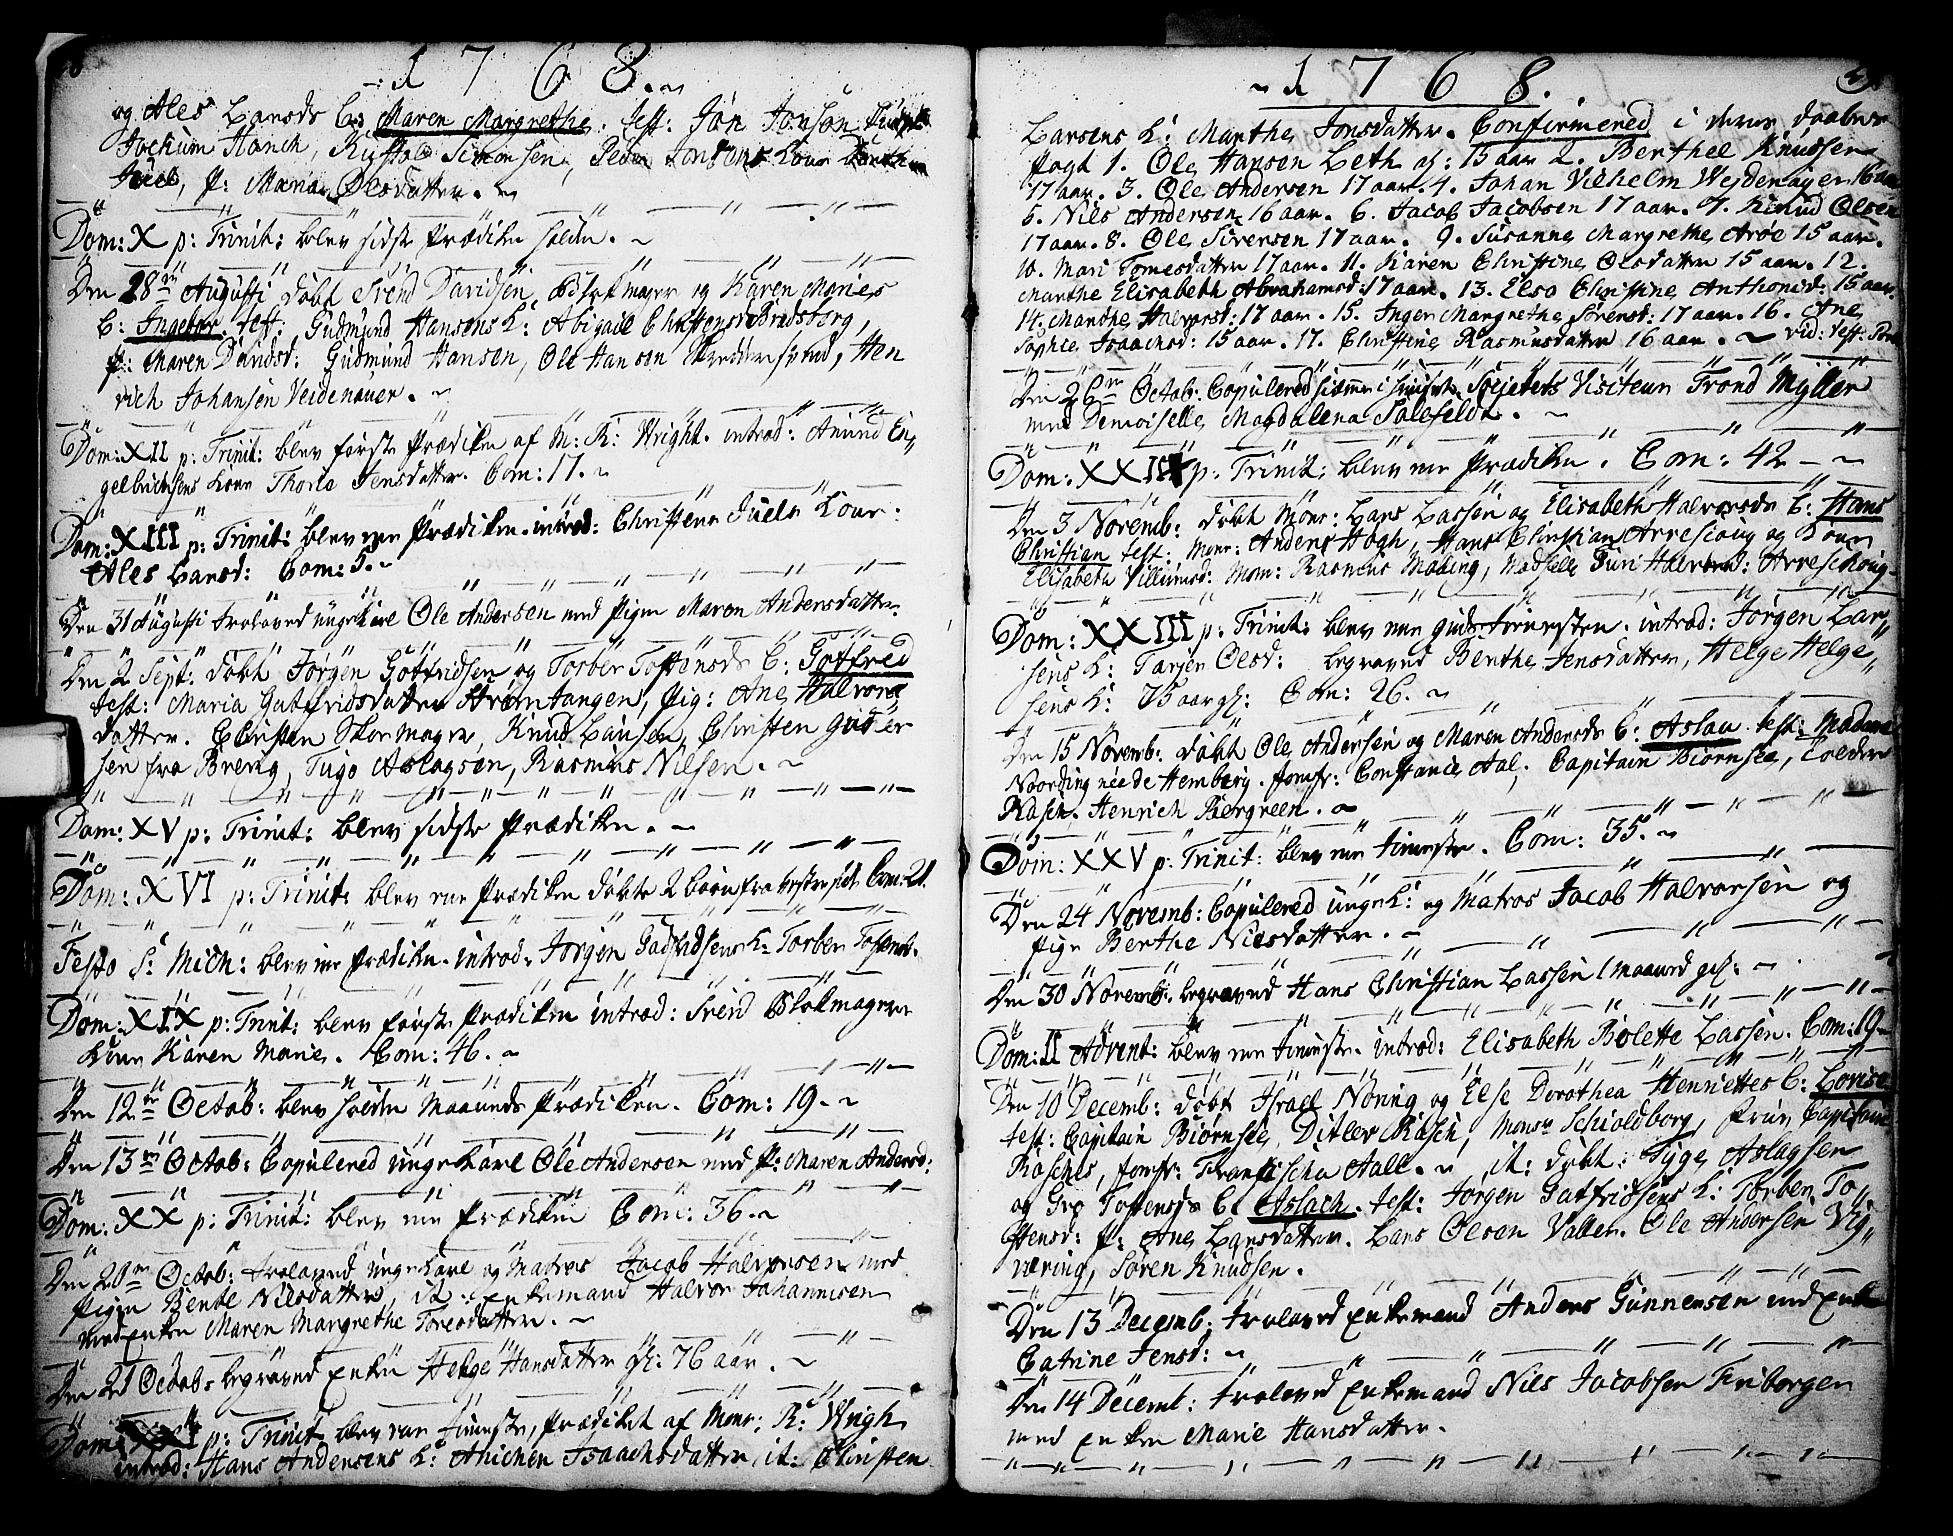 1768.
og Ales Larsds B: Maren Margrethe. test: Jon Jonson
Jochum Hanch, Simonsen, Peder Jonsens Kone
Juel, P: Maria Olesdatter.
Dom: X p: Trinit: blev sidste Prædiken holden.
Den 28de Augusti døbt Svend Davidsen og Karen Maries
B: Ingebor. test. Gudmund Hansens K: Abigael Christensd Bradsberg,
P: Maren Davidsd: Gudmund Hansen, Ole Hansen Skreddersvend, Hen
rich Johansen Veidenauer.
Dom: XII p: Trinit: blev første Prædiken af M: R: Wright. introd: Amund En
gelbrichsens Kone Thorlo Jensdatter. Com: 17.
Dom: XIII p: Trinit: blev een Prædiken. introd: Christenn Juels Kone:
Ales Larsd: Com: 5.
Den 31 Augusti troloved unge Karl Ole Andersen med Pigen Maren Andersdatter.
Den 2 Sept: døbt Jørgen Gotfridsen og Torber Tostensds B: Gotfred
test: Maria Gatfridsdatter Strømtangen, Pig: Ane Halvors
datter. Christen Skoemager, Knud Laursen, Christen
sen fra Breng, Tygo Aslagsen, Rasmus Nilsen.
Dom: XV p: Trinit: blev sidste Prædiken.
Dom: XVI p: Trinit: blev een Prædiken døbte 2 børn fra vestre side Com: 21.
Festo S: Mich: blev een Prædiken. introd. Jørgen Gadfridsens K: Torber Tostensd.
Dom: XIX p: Trinit: blev første Prædiken introd: Svend Blokmagers
Kone Karen Marie. Com: 46.
Den 12te Octob: blev holden Maaneds Prædiken. Com: 19.
Den 13de Octob: Copulered unge Karl Ole Andersen med P: Maren Andersd:
Dom: XX p: Trinit: blev een Prædiken Com: 36.
Den 20de Octob: troloved unge Karl og Matros Jacob Halvorsen med
Pigen Bente Nilsdatter, it: Enkemand Halvor Johannisen
med Enken Maren Margrethe Toresdatter.
Den 21 Octob: begraved Enken Helge Hansdatter gl: 76 aar.
Dom: XXI p: Trinit blev een tieneste, prædiket af Monr: R: Wrigh
introd: Hans Andersens K: Anichen Isaachsdatter, it: Christen
1768.
Larsens K: Marthe Jonsdatter. Confirmered i deres daabes
Pagt 1. Ole Hansen Leth gl: 15 aar 2. Berthel Knudsen
17 aar. 3. Ole Andersen 17 aar. 4. Johan Vilhelm Wejdenauer 16 aar
5. Nils Andersen 16 aar. 6. Jacob Jacobsen 17 aar. 7. Knud Olsen
17 aar. 8. Ole Siversen 17 aar. 9. Susanne Margrethe Arøe 15 aar.
10. Mari Tomesdatter 17 aar. 11. Karen Christine Olsdatter 15 aar. 12.
Marthe Elisabeth Abrahamsd: 17 aar. 13. Elso Christine Anthonisd: 15 aar.
14. Marthe Halvorsd: 17 aar. 15. Inger Margrethe Sørensd: 17 aar. 16. Ane
Sophie Isaachsd: 15 aar. 17. Christine Rasmusdatter 16 aar.
Den 26de Octob: Copulered hiemme i huuset Societets Visiteur Trond Myller
med Demoiselle Magdalena Salefeldt.
Dom: XXII p: Trinit: blev een Prædiken. Com: 42
Den 3 Novemb: døbt Monr: Lars Lassen og Elisabeth Halvorsds B: Hans
Christian test: Monr: Anders Hogh, Hans Christian Arreskoug og Kone
Elisabeth Villumsd: Mom: Rasmus Mabing, Madselle Guri Halvorsd: Arreschoug
Dom: XXIII p: Trinit: blev een guds tieniesten. introd: Jørgen Lar
sens K: Tarjer Olesd: begraved Benthe Jensdatter, Helge Helge
sens K: 75 aar gl: Com: 26.
Den 15 Novemb: døbt Ole Andersen og Maren Andersds B: Aslau test: Madame
Noording née de Hemberg. jomfr: Constance Aal. Capitain Biørnsee,
Rasch. Henrich Biergreen.
Dom: XXV p: Trinit: blev een tieneste. Com: 35.
Den 24 Novemb: Copulered unge K: og Matros Jacob Halvorsen og
Pige Berthe Nilsdatter.
Den 30 Novemb: begraved Hans Christian Lassen 1 maaned gl:
Dom: II Advent: blev een tieneste. introd: Elisabeth Bolette Lassen. Com: 19
Den 10 Decemb: døbt Israel Noring og Else Dorothea Henriettes B: Lovise
test: Capitain Biørnsee, Ditlev Rasch, Monsr Schioldborg, Frue Capitain
Rasches, jomfr: Frantzischa Aall. it: døbt: Tyge Aslagsen
og Gro Tostensds B: Aslach. test: Jørgen Gatfridsens K: Torber To
stensd: P: Ane Larsdatter. Lars Olesen Valler. Ole Andersen Vig
næring, Søren Knudsen.
Den 13 Decemb: troloved Enkemand Anders Gunnersen med Enke
Catrine Jensd:
Den 14 Decemt: trolovd Enkemand Nils Jacobsen Friborgen
med Enken Marie Hansdatter.